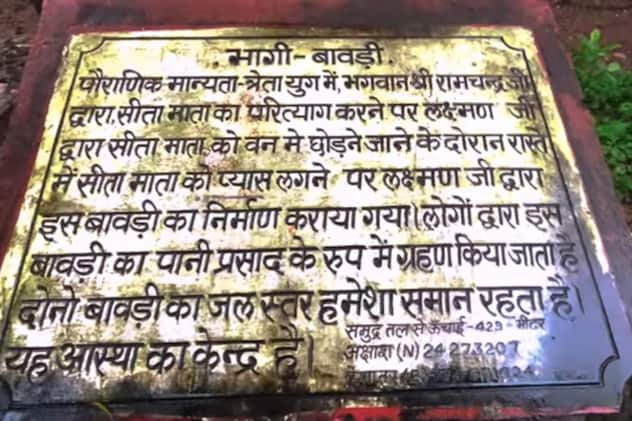 भागी-बावड़ी.
पौराणिक मान्यता-त्रेता युग में, भगवान श्री रामचन्द्र जी
द्वारा सीता माता का परित्याग करने पर लक्ष्मण जी
द्वारा सीता माता को वन मे छोड़ने जाने के दोरान रास्ते
में सीता माता को प्यास लगने पर लक्ष्मण जी द्वारा
इस बावड़ी का निर्माण कराया गया। लोगों द्वारा इस
बावड़ी का पानी प्रसाद के रुप में ग्रहण किया जाता है
दोनो बावड़ी का जल स्तर हमेशा समान रहता है।
यह आस्था का केन्द्र है।
समुद्र तल से ऊंचाई-429-मीटर
अक्षांश (N) 24 27320